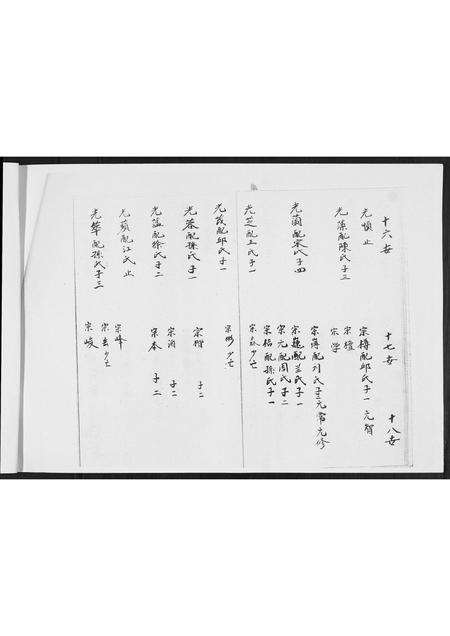 十六世 十七世 十八世
光慎 止
光藻配陳氏子三
宗樽配邱氏子一 元智
宗檀
宗学
光蘭配宋氏子四
宗蒋配刘氏子二元常元修
宗配兰氏子一
宗元配周氏子二
宗招配孫氏子一
光芝配王氏子一
宗 少亡
光茂配邱氏子一
宗彬少亡
光蓉配孫氏子一
宗楷 子二
光蓝配徐氏子二
宗泊 子二
宗本 子二
光蘋配江氏 止
光華配孫氏子三
宗峰
宗玄少亡
宗峻